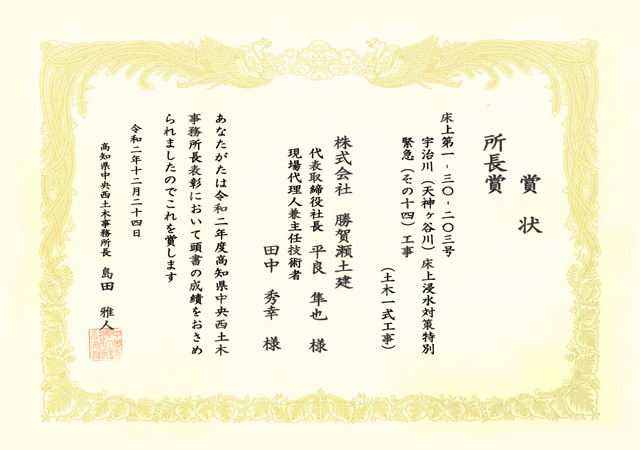 賞状
所長賞
床上第一－三〇－二〇三号
宇治川（天神ヶ谷川）床上浸水対策特別
緊急（その十四）工事
（土木一式工事）
株式会社 勝賀瀬土建
代表取締役社長 平良 隼也 様
現場代理人兼主任技術者
田中 秀幸 様
あなたがたは令和二年度高知県中央西土木
事務所長表彰において頭書の成績をおさめ
られましたのでこれを賞します
令和二年十二月二十四日
高知県中央西土木事務所長 島田 雅人